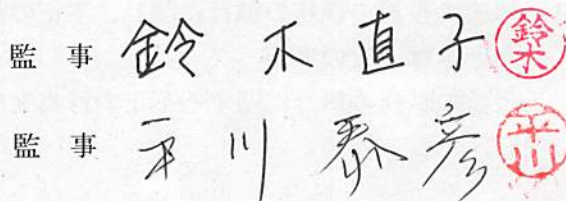 監事 鈴木直子 鈴木
監事 平川泰彦 平川